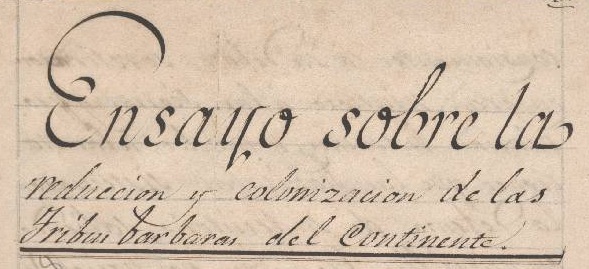 Ensayo sobre la
reduccion y colonizacion de las
Tribus barbaras del Continente.